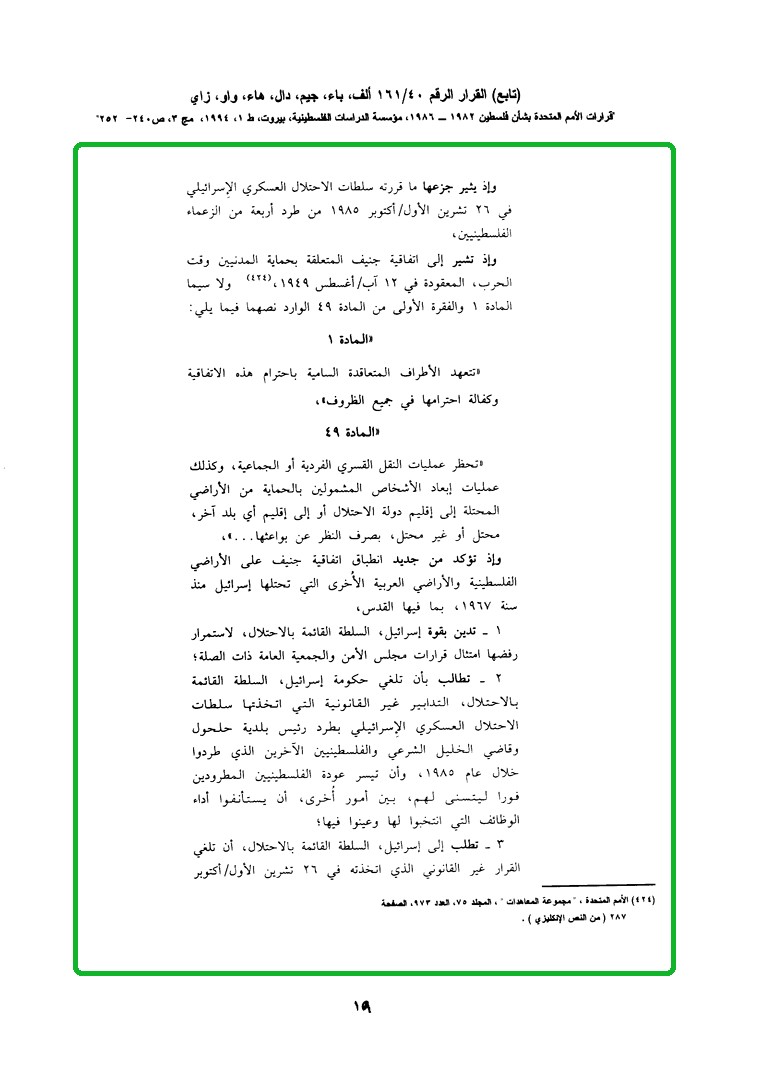 (تابع) القرار الرقم ١٦١/٤٠ ألف، باء، جيم، دال، هاء، واو، زاي
"قرارات الأمم المتحدة بشأن فلسطين ١٩٨٢ ــ ١٩٨٦، مؤسسة الدراسات الفلسطينية، بيروت، ط ١، ١٩٩٤، مج ٣، ص ٢٤٠- ٢٥٢"
وإذ يثير جزعها ما قررته سلطات الاحتلال العسكري الإسرائيلي
في ٢٦ تشرين الأول/أكتوبر ١٩٨٥ من طرد أربعة من الزعماء
الفلسطينيين،
وإذ تشير إلى اتفاقية جنيف المتعلقة بحماية المدنيين وقت
الحرب، المعقودة في ١٢ آب/أغسطس ١٩٤٩،(٤٢٤) ولا سيما
المادة ١ والفقرة الأولى من المادة ٤٩ الوارد نصهما فيما يلي:
«المادة ١
«تتعهد الأطراف المتعاقدة السامية باحترام هذه الاتفاقية
وكفالة احترامها في جميع الظروف»،
«المادة ٤٩
«تحظر عمليات النقل القسري الفردية أو الجماعية، وكذلك
عمليات إبعاد الأشخاص المشمولين بالحماية من الأراضي
المحتلة إلى إقليم دولة الاحتلال أو إلى إقليم أي بلد آخر،
محتل أو غير محتل، بصرف النظر عن بواعثها...»،
وإذ تؤكد من جديد انطباق اتفاقية جنيف على الأراضي
الفلسطينية والأراضي العربية الأُخرى التي تحتلها إسرائيل منذ
سنة ١٩٦٧، بما فيها القدس،
١ ـ تدين بقوة إسرائيل، السلطة القائمة بالاحتلال، لاستمرار
رفضها امتثال قرارات مجلس الأمن والجمعية العامة ذات الصلة؛
٢ ـ تطالب بأن تلغي حكومة إسرائيل، السلطة القائمة
بالاحتلال، التدابير غير القانونية التي اتخذتها سلطات
الاحتلال العسكري الإسرائيلي بطرد رئيس بلدية حلحول
وقاضي الخليل الشرعي والفلسطينيين الآخرين الذي طردوا
خلال عام ١٩٨٥، وأن تيسر عودة الفلسطينيين المطرودين
فورا ليتسنى لهم، بين أمور أُخرى، أن يستأنفوا أداء
الوظائف التي انتخبوا لها وعينوا فيها؛
٣ ـ تطلب إلى إسرائيل، السلطة القائمة بالاحتلال، أن تلغي
القرار غير القانوني الذي اتخذته في ٢٦ تشرين الأول/أكتوبر
(٤٢٤) الأمم المتحدة ، " مجموعة المعاهدات " ، المجلد ٧٥، العدد ٩٧٣، الصفحة
٢٨٧ ( من النص الإنكليزي ) .
١٩